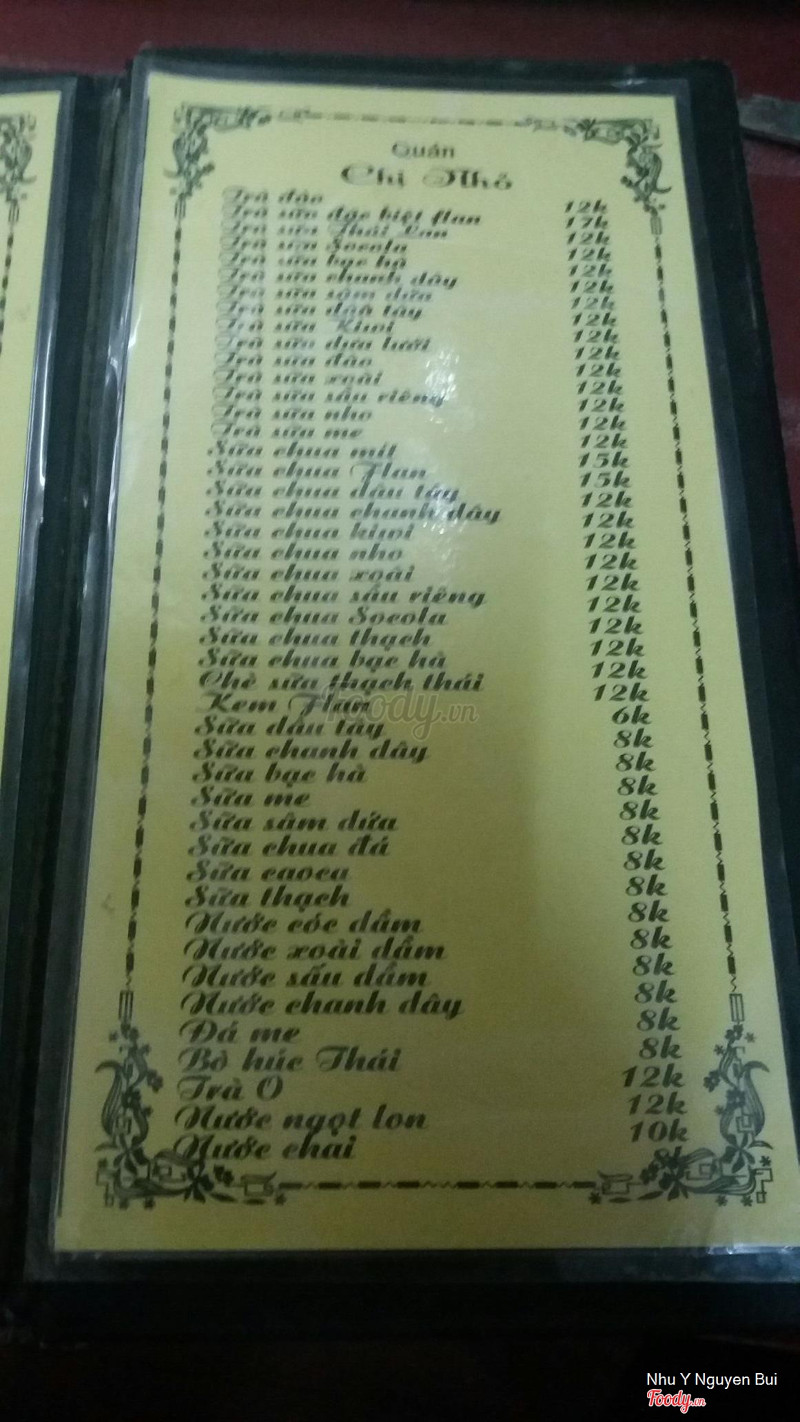 Quán
Chị Nhỏ
Trà đào 12k
Trà sữa đặc biệt flan 17k
Trà sữa Thái Lan 12k
Trà sữa Socola 12k
Trà sữa bạc hà 12k
Trà sữa chanh dây 12k
Trà sữa sâm dứa 12k
Trà sữa dâu tây 12k
Trà sữa Kiwi 12k
Trà sữa dưa lưới 12k
Trà sữa đào 12k
Trà sữa xoài 12k
Trà sữa sầu riêng 12k
Trà sữa nho 12k
Trà sữa me 12k
Sữa chua mít 15k
Sữa chua Flan 15k
Sữa chua dâu tây 12k
Sữa chua chanh dây 12k
Sữa chua kiwi 12k
Sữa chua nho 12k
Sữa chua xoài 12k
Sữa chua sầu riêng 12k
Sữa chua Socola 12k
Sữa chua thạch 12k
Sữa chua bạc hà 12k
Chè sữa thạch thái 12k
Kem Flan 6k
Sữa dâu tây 8k
Sữa chanh dây 8k
Sữa bạc hà 8k
Sữa me 8k
Sữa sâm dứa 8k
Sữa chua đá 8k
Sữa caoca 8k
Sữa thạch 8k
Nước cóc dầm 8k
Nước xoài dầm 8k
Nước sấu dầm 8k
Nước chanh dây 8k
Đá me 8k
Bò húc Thái 12k
Trà O 12k
Nước ngọt lon 10k
Nước chai 8k
Foody.vn
Nhu Y Nguyen Bui
Foody.vn